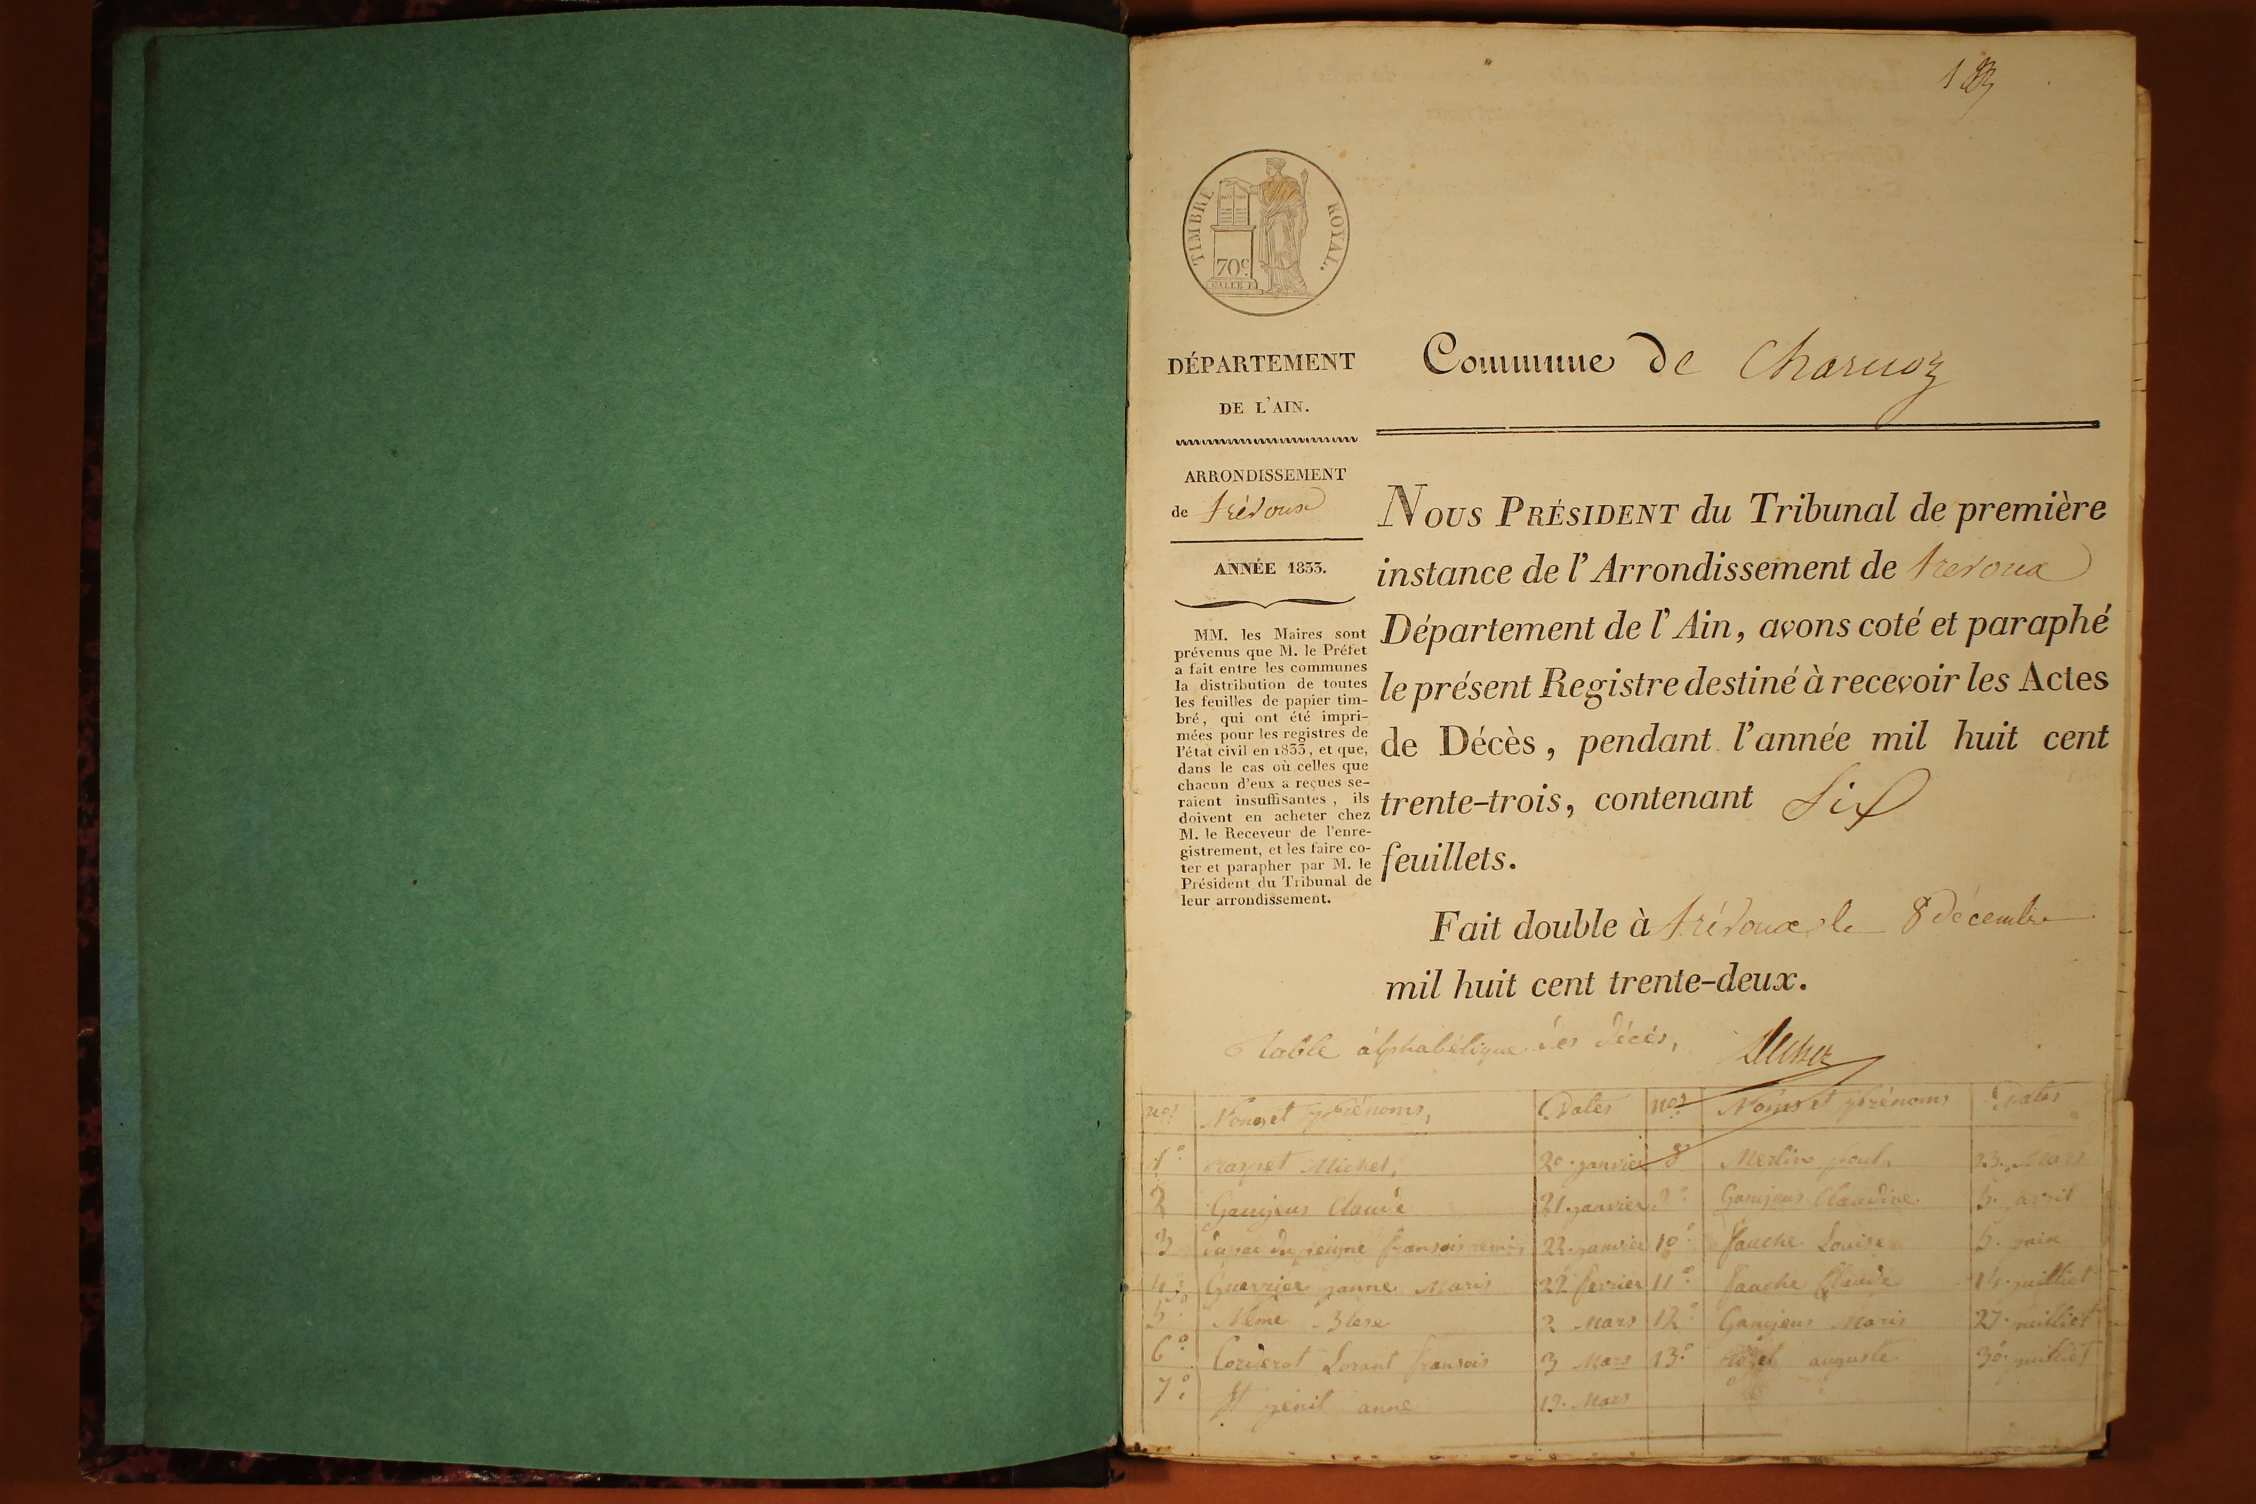 TIMBRE ROYAL.
70c
DÉPARTEMENT
DE L'AIN.
ARRONDISSEMENT
de trévoux
ANNÉE 1833.
MM. les Maires sont
prévenus que M. le Préfet
a fait entre les communes
la distribution de toutes
les feuilles de papier tim-
bré, qui ont été impri-
mées pour les registres de
l'état civil en 1833, et que,
dans le cas où celles que
chacun d'eux a reçues se-
raient insuffisantes, ils
doivent en acheter chez
M. le Receveur de l'enre-
gistrement, et les faire co-
ter et parapher par M. le
Président du Tribunal de
leur arrondissement.
Commune de Charnoz
Nous PRÉSIDENT du Tribunal de première
instance de l'Arrondissement de trevoux
Département de l'Ain, avons coté et paraphé
le présent Registre destiné à recevoir les Actes
de Décès, pendant l'année mil huit cent
trente-trois, contenant Six
feuillets.
Fait double à trévoux le 8 décembre
mil huit cent trente-deux.
table alphabétique des décés,
nos Noms et prénoms, Dates nos Noms et prénoms Dates
1º Michel, 20 janvier 8 Merlin 23. Mars
2 Claude 21 janvier 9º Claudine 5. avril
3 22 janvier 10º fauche Louise 5. juin
4º Guerrier janne Marie 22 fevrier 11º fauche Claude 14 juilliet
5º Même 2 Mars 12º Marie 27 juilliet
6º Lorant fransois 3 Mars 13º auguste 30 juilliet
7º anne 13. Mars